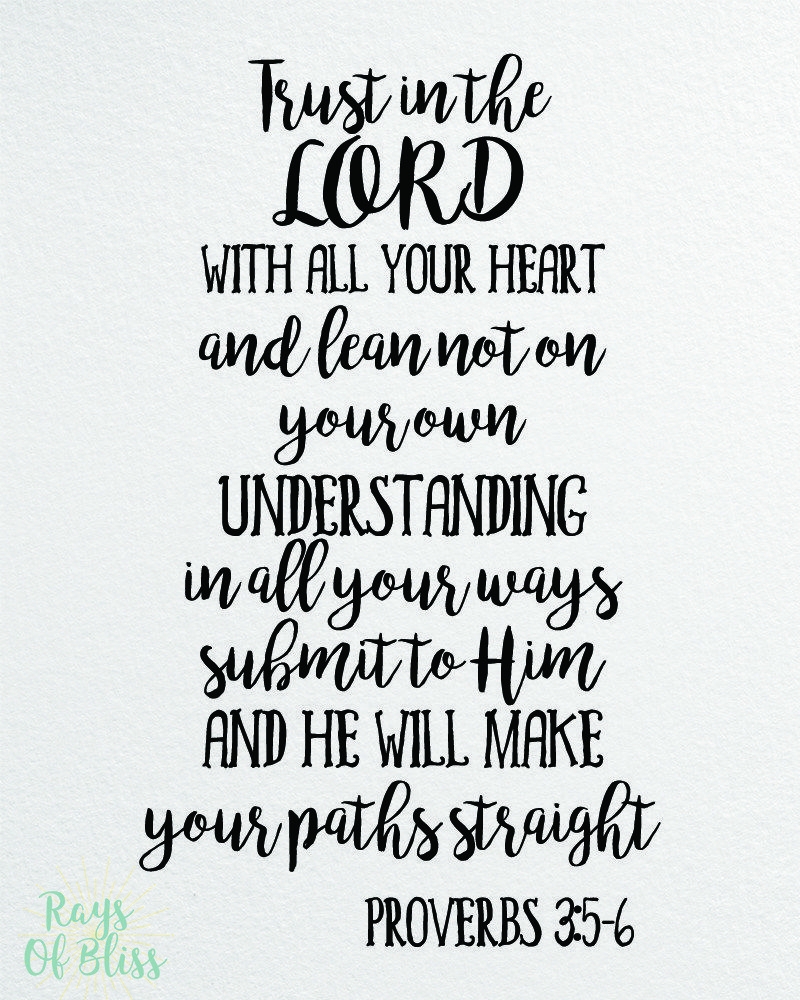 Trust in the
LORD
WITH ALL YOUR HEART
and lean not on
your own
UNDERSTANDING
in all your ways
submit to Him
AND HE WILL MAKE
your paths straight
PROVERBS 3:5-6
Rays
Of Bliss